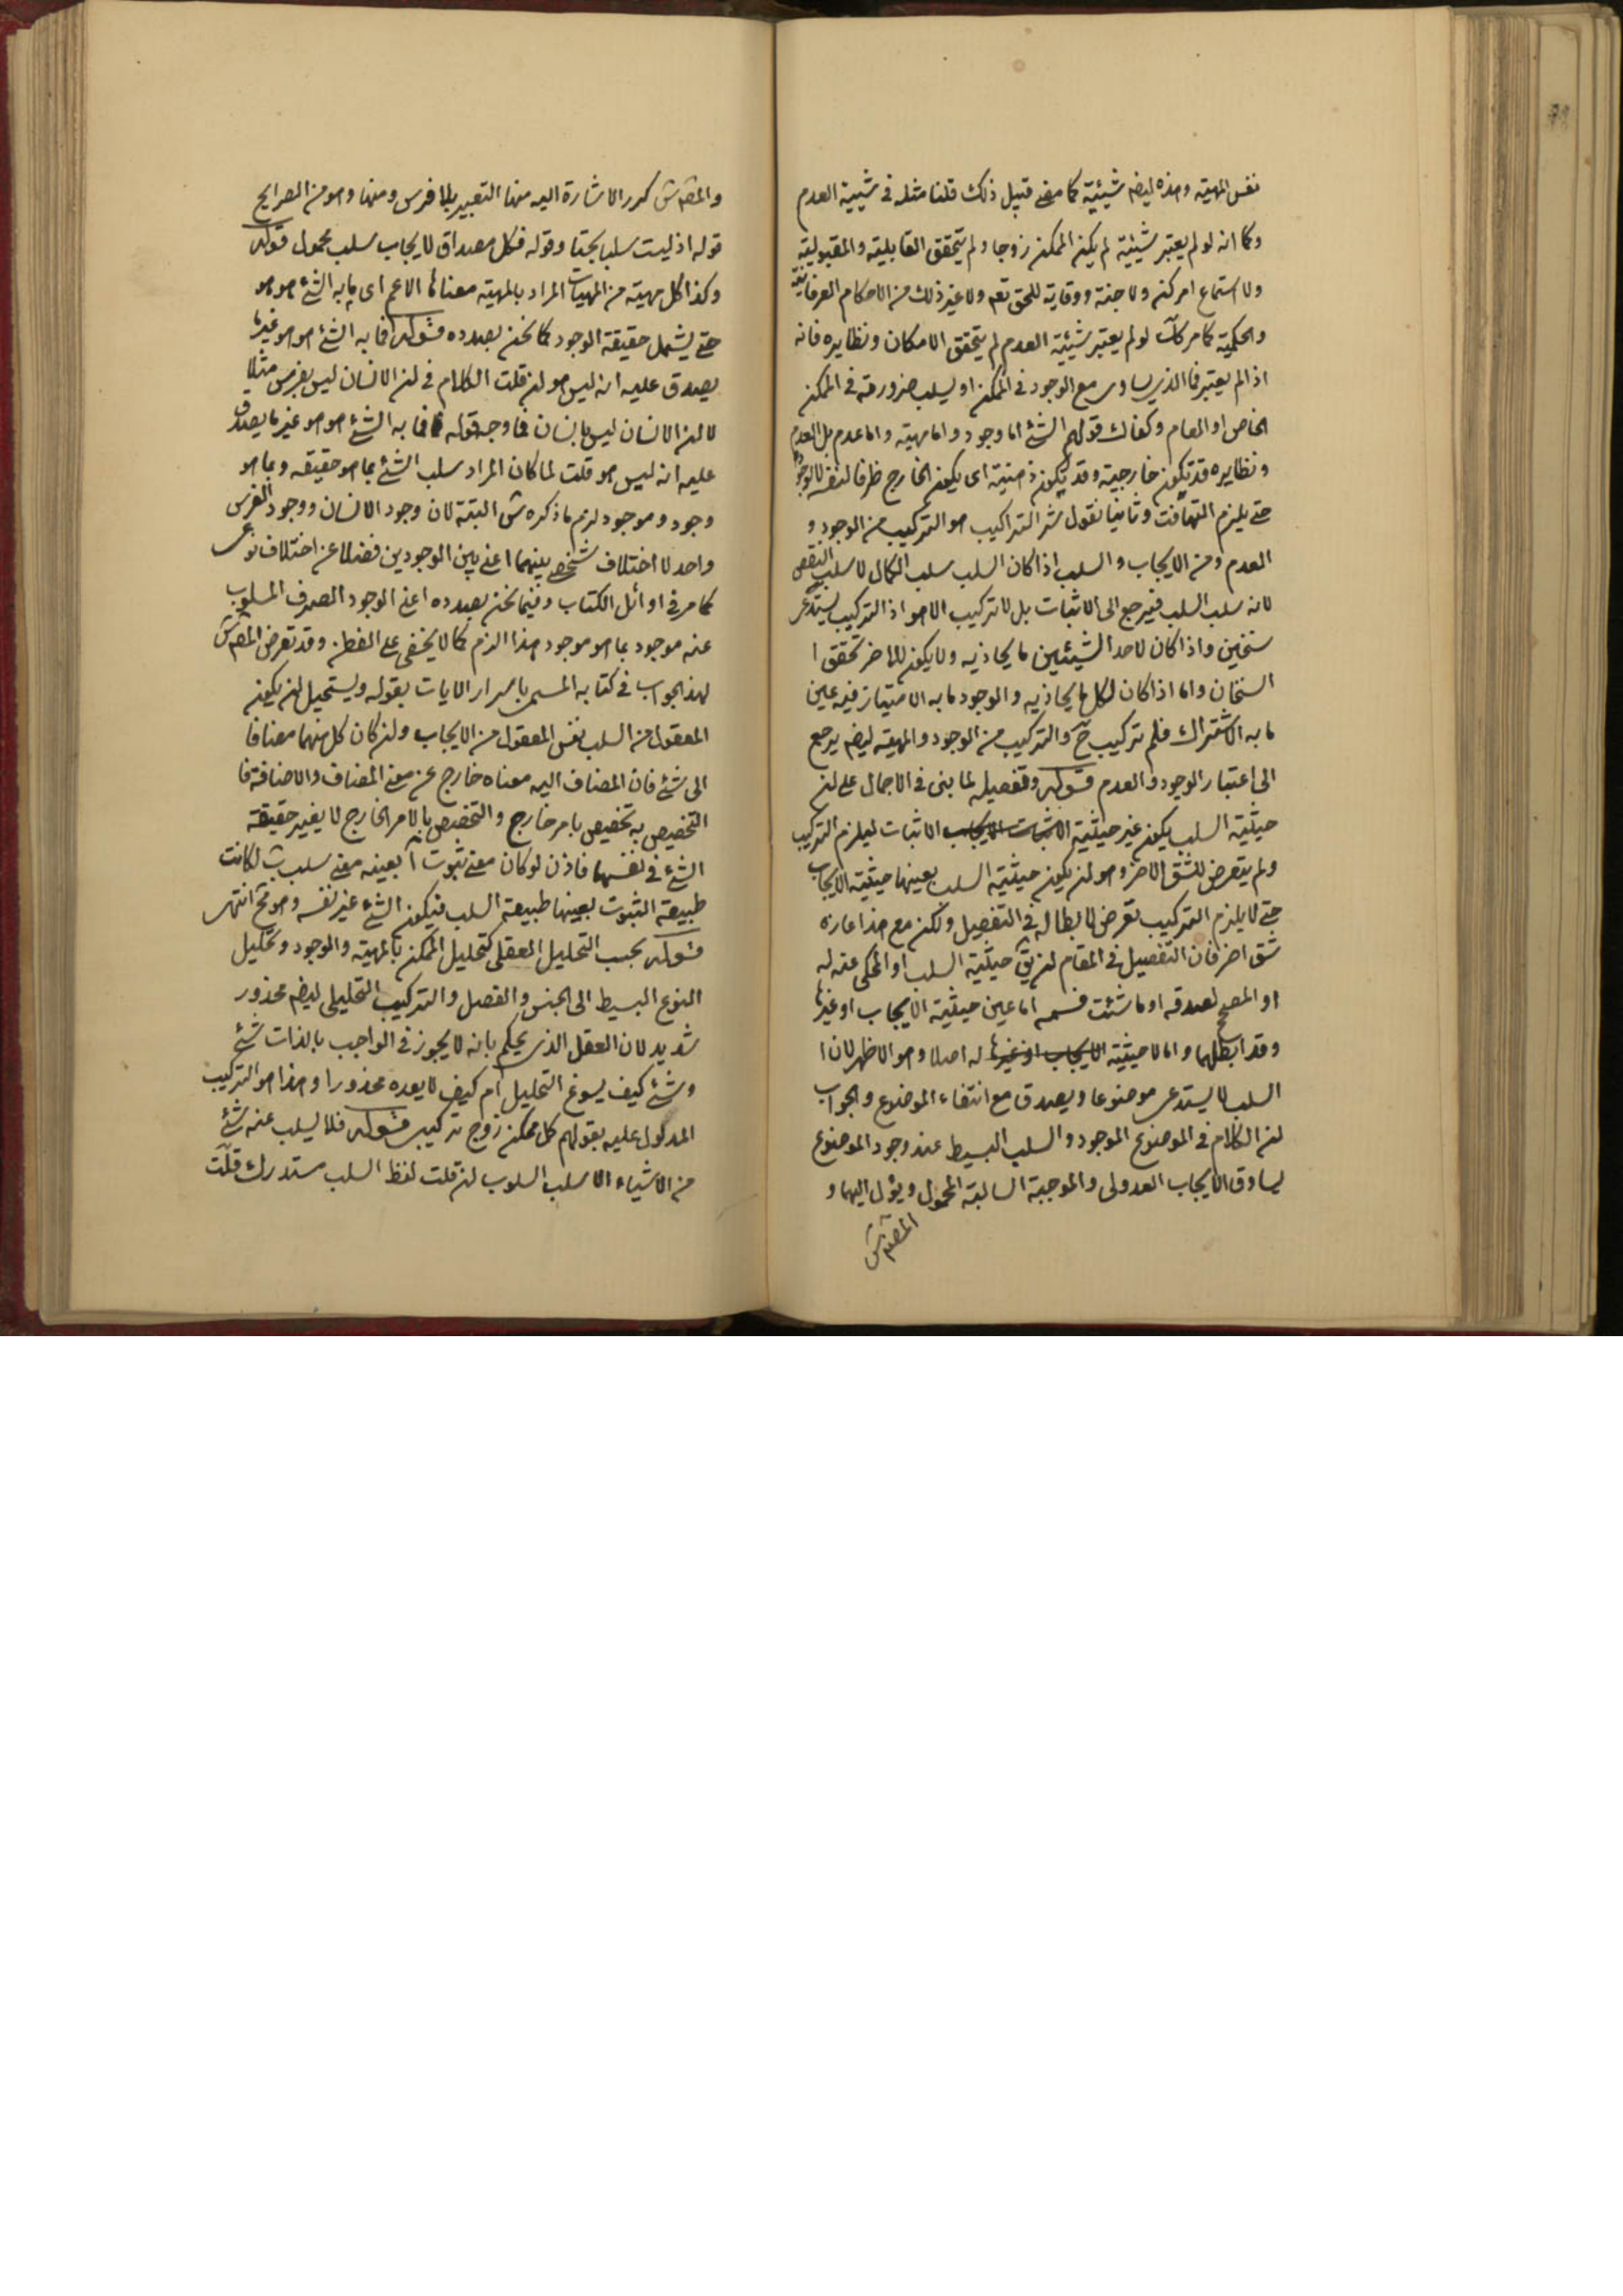 نفس المهية وهذه ايضم شيئية كما مضى قبيل ذلك قلنا مثله فى شيئية العدم
وكما انه لو لم يعتبر شيئية لم يكن الممكن زوجا ولم يتحقق القابلية والمقبولية
ولا استماع امر كن ولا جنة ووقاية للحق تعم ولا غير ذلك من الاحكام العرفانية
والحكمية كما مر كك لو لم يعتبر شيئية العدم لم يتحقق الامكان ونظايره فانه
اذا لم يعتبر فما الذى يساوى مع الوجود فى الممكن او يسلب ضرورته فى الممكن
الخاص او العام وكفاك قولهم الشئ اما وجود واما مهية واما عدم بل العدم
ونظايره قد تكون خارجية وقد تكون ذهنية اى يكون الخارج ظرفا لنفسه لا لوجوده
حتى يلزم التهافت وثانيا نقول شر التراكيب هو التركيب من الوجود و
العدم ومن الايجاب والسلب اذا كان السلب سلب الكمال لا سلب النقص
لانه سلب السلب فيرجع الى الاثبات بل لا تركيب الا هو اذ التركيب يستدعى
سنخين واذا كان لاحد الشيئين ما يحاذيه ولا يكون للاخر تحقق ا
السنخان واما اذا كان لكل ما يحاذيه والوجود ما به الامتياز فيه عين
ما به الاشتراك فلم تركيب ح والتركيب من الوجود والمهية ايضم يرجع
الى اعتبار الوجود والعدم قوله وتفصيله لما بنى فى الاجمال على ان
حيثية السلب يكون غير حيثية الاثبات الايجاب الاثبات ليلزم التركيب
ولم يتعرض للشق الاخر وهو ان يكون حيثية السلب بعينها حيثية الايجاب
حتى لا يلزم التركيب تعرض لابطاله فى التفصيل ولكن مع هذا عازه
شق اخر فان التفصيل فى المقام ان يق حيثية السلب او المحكى عنه له
او المصحح لصدقه او ما شئت فسمه اما عين حيثية الايجاب او غيرها
وقد ابطلهما واما لا حيثية الايجاب او غيرها له اصلا وهو الاظهر لان ا
السلب لا يستدعى موضوعا ويصدق مع انتفاء الموضوع والجواب
ان الكلام فى الموضوع الموجود والسلب البسيط عند وجود الموضوع
يساوق الايجاب العدولى والموجبة السالبة المحمول ويؤل اليهما و
المصم ش
والمصم ش كرر الاشارة اليه منها التعبير بلا فرس ومنها وهو من الصرايح
قوله اذ ليست سلبا بحتا وقوله فكل مصداق لايجاب سلب محمول قوله
وكذا كل مهية من المهيات المراد بالمهية معناها الاعم اى ما به الشئ هو هو
حتى يشمل حقيقة الوجود كما نحن بصدده قوله فما به الشئ هو هو غيرها
يصدق عليه انه ليس هو ان قلت الكلام فى ان الانسان ليس بفرس مثلا
لا ان الانسان ليس بانسان فما وجه قوله فما به الشئ هو هو غير ما يصدق
عليه انه ليس هو قلت لما كان المراد سلب الشئ بما هو حقيقة وبما هو
وجود وموجود لزم ما ذكره ش البتة لان وجود الانسان ووجود الفرس
واحد لا اختلاف شخصى بينهما اعنى بين الوجودين فضلا عن اختلاف نوعى
كما مر فى اوائل الكتاب وفيما نحن بصدده اعنى الوجود الصرف المسلوب
عنه موجود بما هو موجود هذا الزم كما لا يخفى على الفطن وقد تعرض المصم ش
لهذا الجواب فى كتابه المسمى باسرار الايات بقوله ويستحيل ان يكون
المعقول من السلب نفس المعقول من الايجاب وان كان كل منهما مضافا
الى شئ فان المضاف اليه معناه خارج عن معنى المضاف والاضافة فا
التخصيص به تخصيص بامر خارج والتخصيص بالامر الخارج لا يغير حقيقة
الشئ فى نفسها فاذن لو كان معنى ثبوت ا بعينه معنى سلب ب لكانت
طبيعة الثبوت بعينها طبيعة السلب فيكون الشئ غير نفسه وهو مح انتهى
قوله بحسب التحليل العقلى كتحليل الممكن بالمهية والوجود وتحليل
النوع البسيط الى الجنس والفصل والتركيب التحليلى ايضم محذور
شديد لان العقل الذى يحكم بانه لا يجوز فى الواجب بالذات شئ
وشئ كيف يسوغ التحليل ام كيف لا يعده محذورا وهذا هو التركيب
المدلول عليه بقولهم كل ممكن زوج تركيبى قوله فلا يسلب عنه شئ
من الاشياء الا سلب السلوب ان قلت لفظ السلب مستدرك قلت